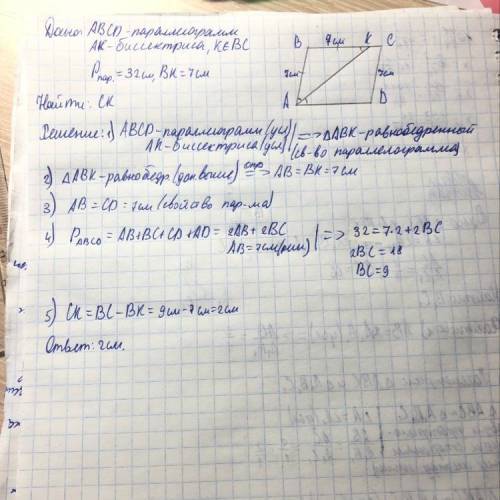 Дано: ABCD-параллелограмм
AK-биссектриса, K∈BC
Pпар. = 32см, BK = 7см
Найти: CK
B 7см K C
7см 7см
A D
Решение: 1) ABCD-параллелограмм (усл)
AK-биссектриса (усл) | => △ABK-равнобедренный
(св-во параллелограмма)
2) △ABK-равнобедр (доказание) опр => AB = BK = 7см
3) AB = CD = 7см (свойство пар-ма)
4) PABCD = AB+BC+CD+AD = 2AB + 2BC
AB = 7см | => 32 = 7·2+2BC
2BC = 18
BC = 9
5) CK = BC - BK = 9см - 7см = 2см
Ответ: 2см.